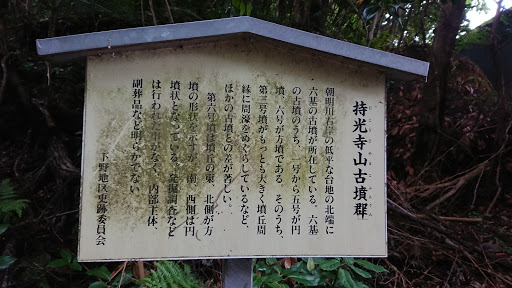 持光寺山古墳群
朝明川右岸の低平な台地の北端に
六基の古墳が所在している。六基
の古墳のうち、一号から五号が円
墳、六号が方墳である。そのうち、
第三号墳がもっとも大きく墳丘周
縁に周濠をめぐらしているなど、
ほかの古墳との差が著しい。
第六号墳は墳丘の東、北側が方
墳の形状を示すが、南、西側は円
墳状となっている。発掘調査など
は行われた事がなく、内部主体、
副葬品など明らかでない。
下野地区史跡委員会